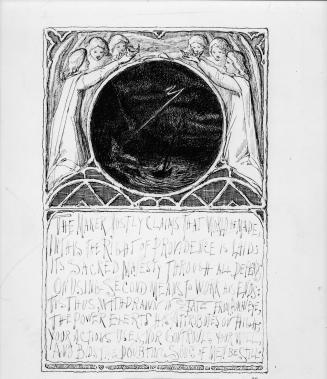 THE MAKER JUSTLY CLAIMS THAT WORLD HE MADE
IN THIS THE RIGHT OF PROVIDENCE IS LAID
ITS SACRED MAJESTY THROUGH ALL DEPENDS
ON USING SECOND MEANS TO WORK HIS ENDS:
TIS THUS, WITHDRAWN IN STATE FROM HUMAN EYE,
THE POWER EXERTS HIS ATTRIBUTES ON HIGH,
YOUR ACTIONS USES, NOR CONTROLS YOUR WILL,
AND BIDS THE DOUBTING SONS OF MEN BE STILL